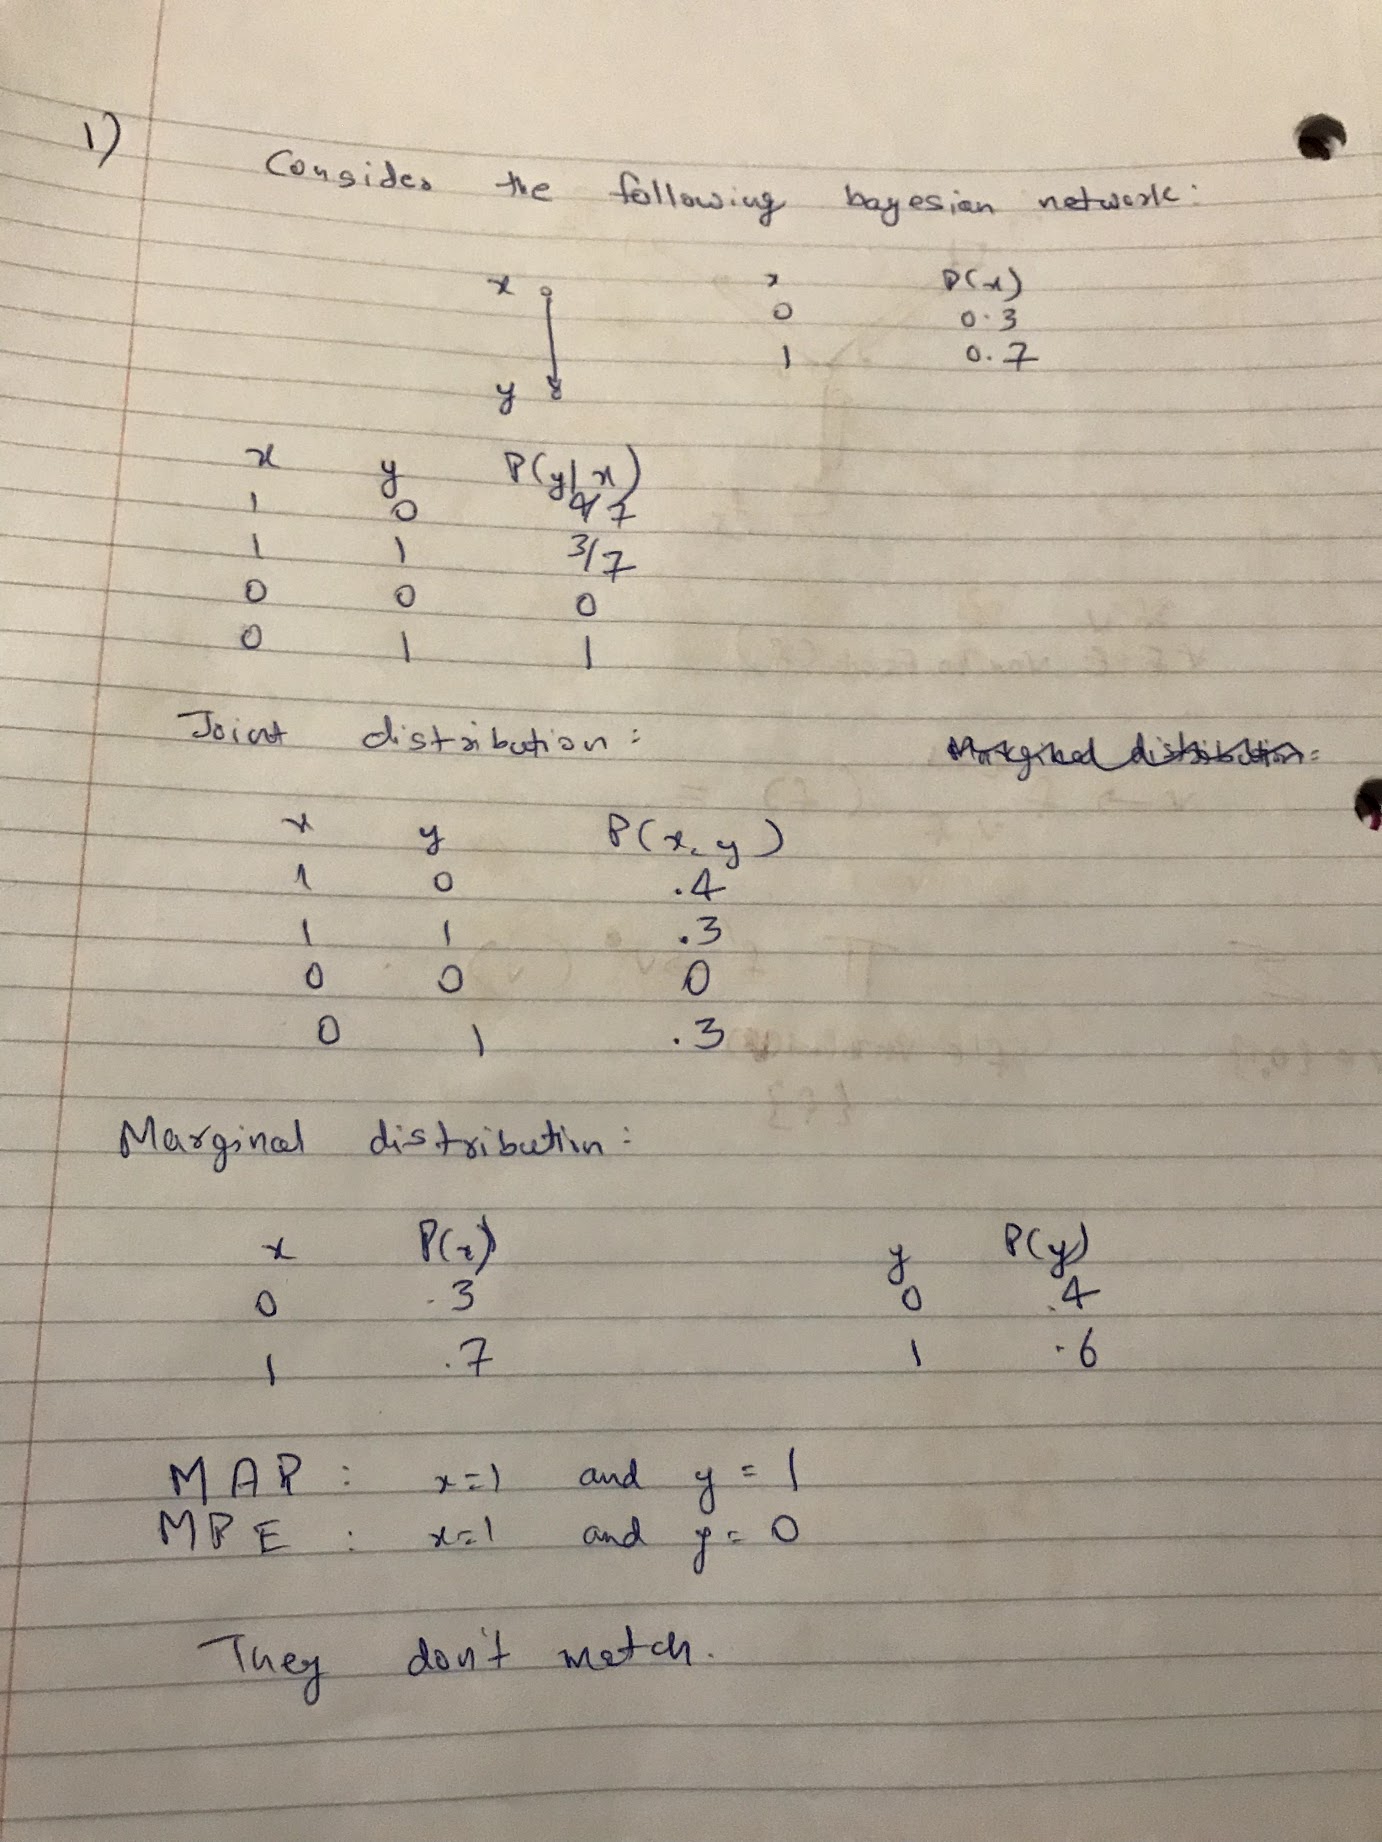 1)
Consider the following bayesian network:
x x P(x)
0 0.3
1 0.7
y
x y P(y|x)
1 0 4/7
1 1 3/7
0 0 0
0 1 1
Joint distribution: Marginal distribution:
x y P(x, y)
1 0 .4
1 1 .3
0 0 0
0 1 .3
Marginal distribution:
x P(x) y P(y)
0 .3 0 .4
1 .7 1 .6
MAP : x=1 and y = 1
MPE : x=1 and y = 0
They don't match.